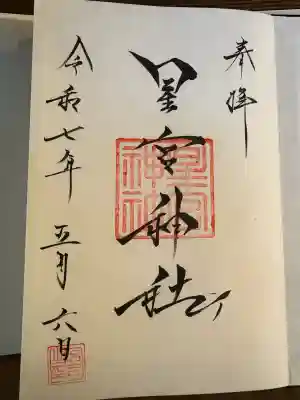 奉拝
星宮神社
令和七年 五月 六日
星宮神社